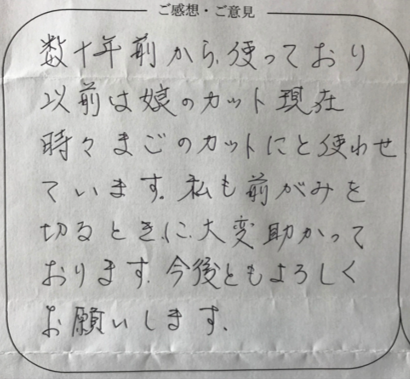 ご感想・ご意見
数十年前から、使っており
以前は娘のカット現在
時々まごのカットにと使わせ
ています。私も前がみを
切るときに、大変助かって
おります。今後ともよろしく
お願いします。